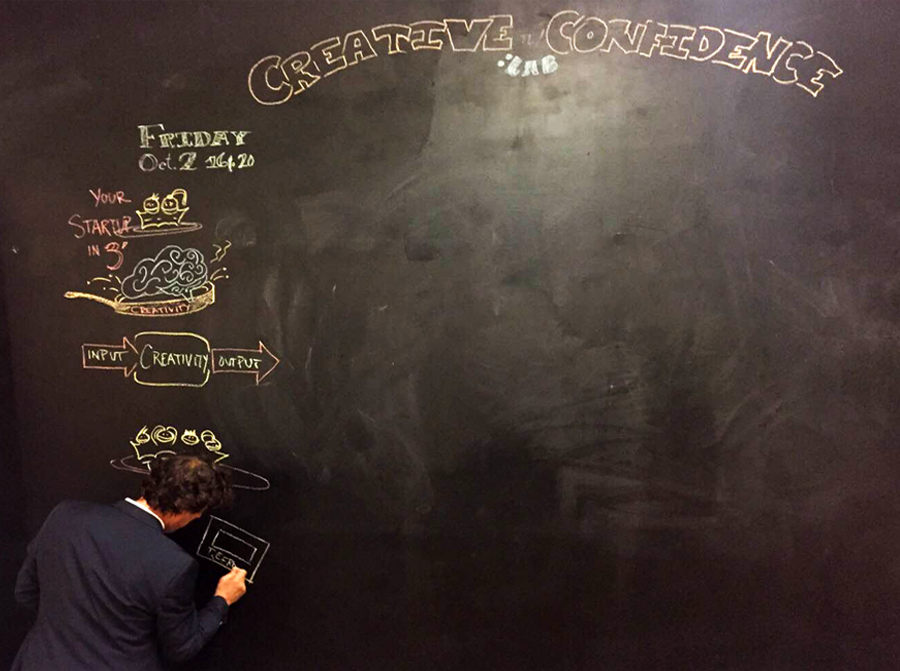 CREATIVE CONFIDENCE
LAB
FRIDAY
Oct. 2
YOUR
STARTUP
IN 3'
CREATIVITY
INPUT CREATIVITY OUTPUT